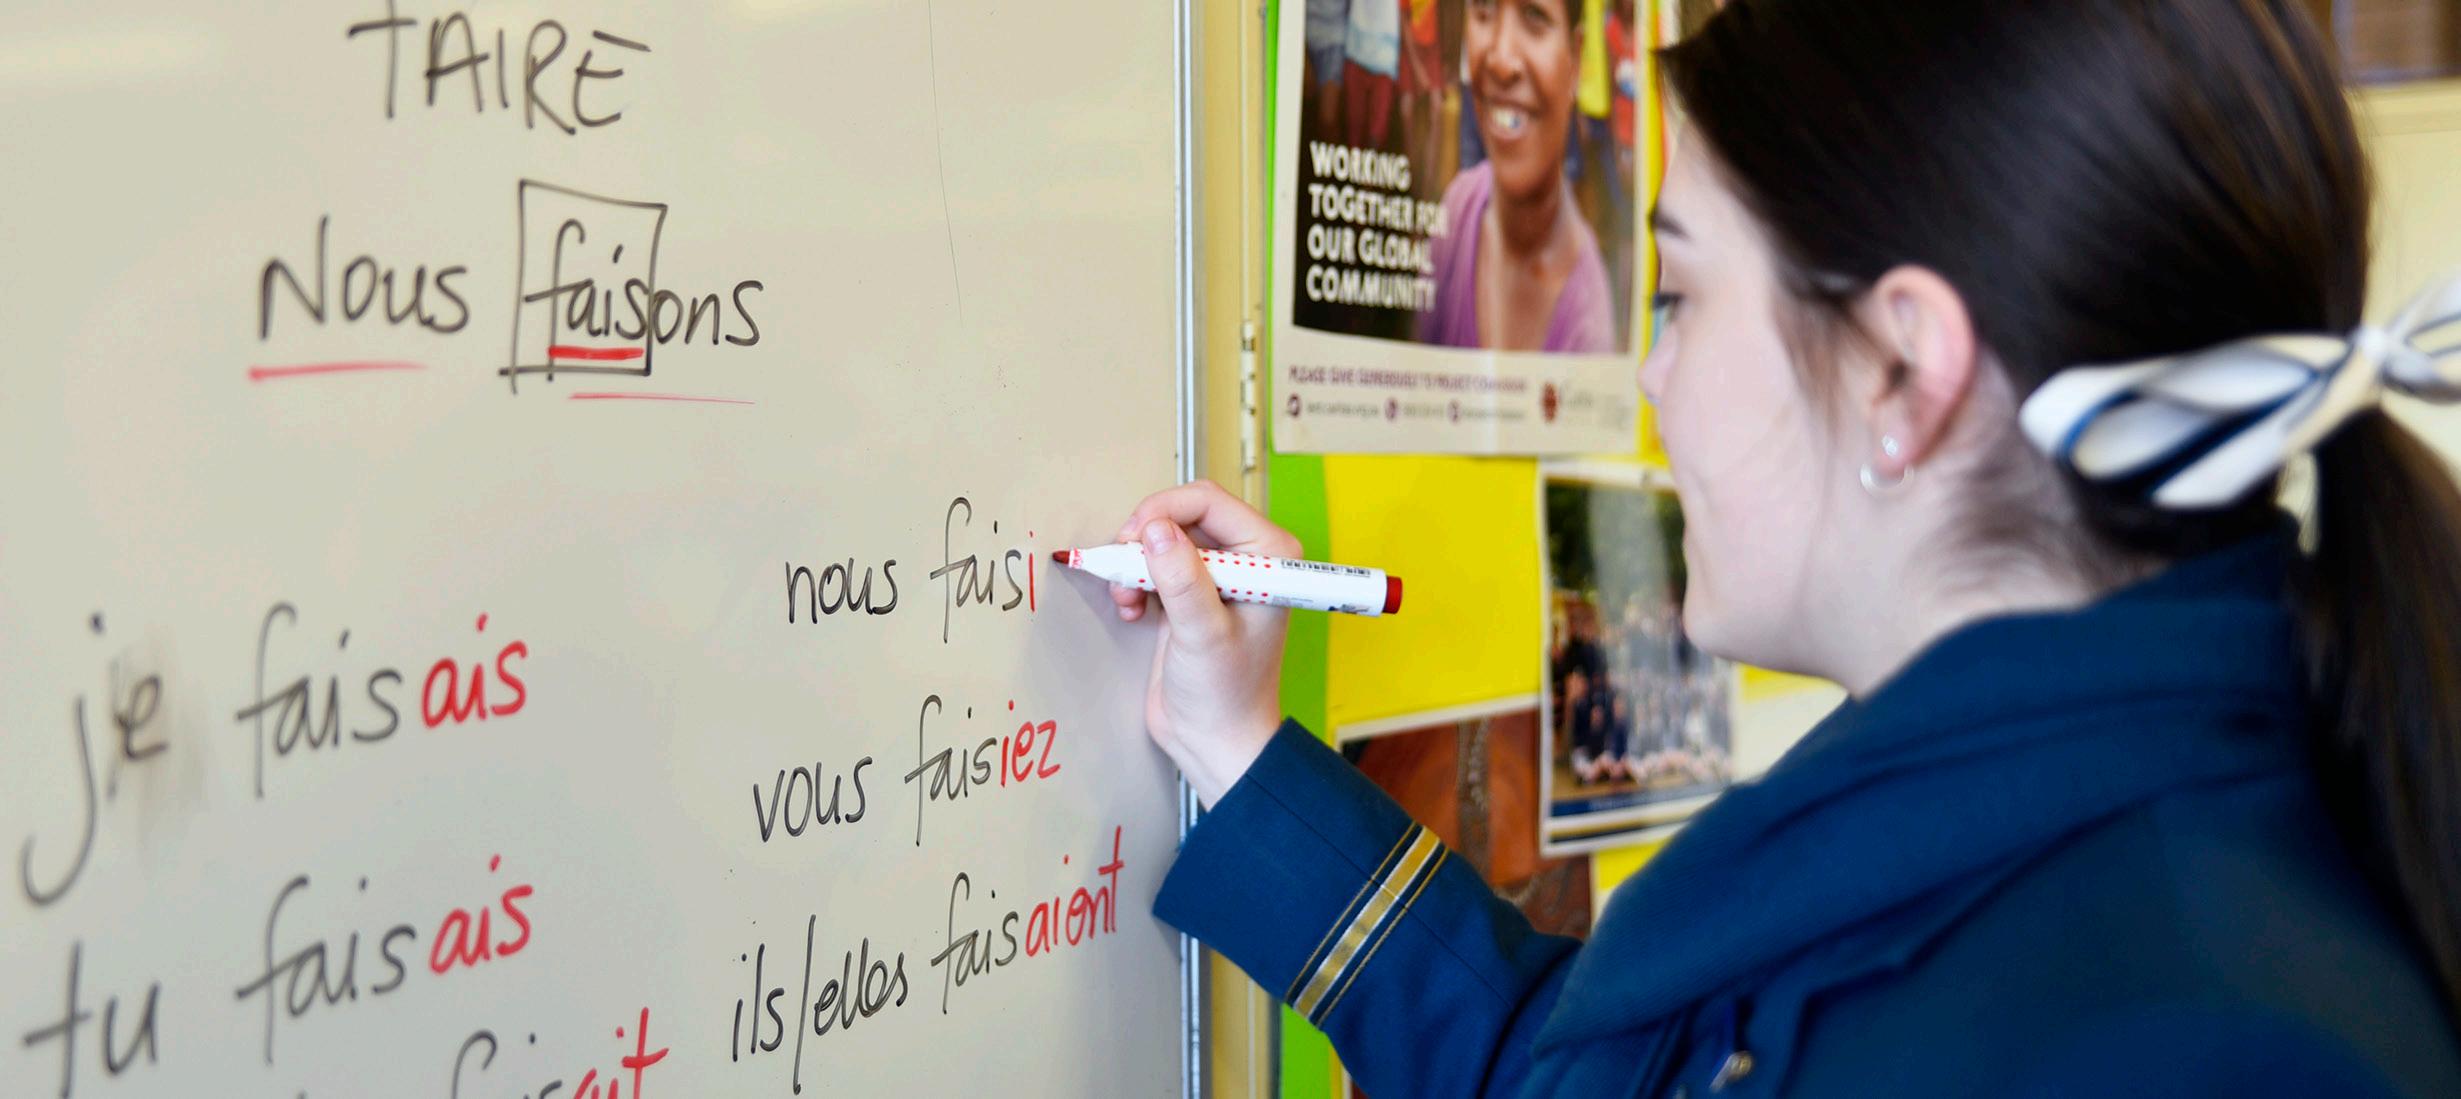 FAIRE
Nous faisons
je faisais
tu faisais
nous faisi
vous faisiez
ils/elles faisaient
WORKING
TOGETHER FOR
OUR GLOBAL
COMMUNITY
PLEASE GIVE GENEROUSLY TO PROJECT COMPASSION